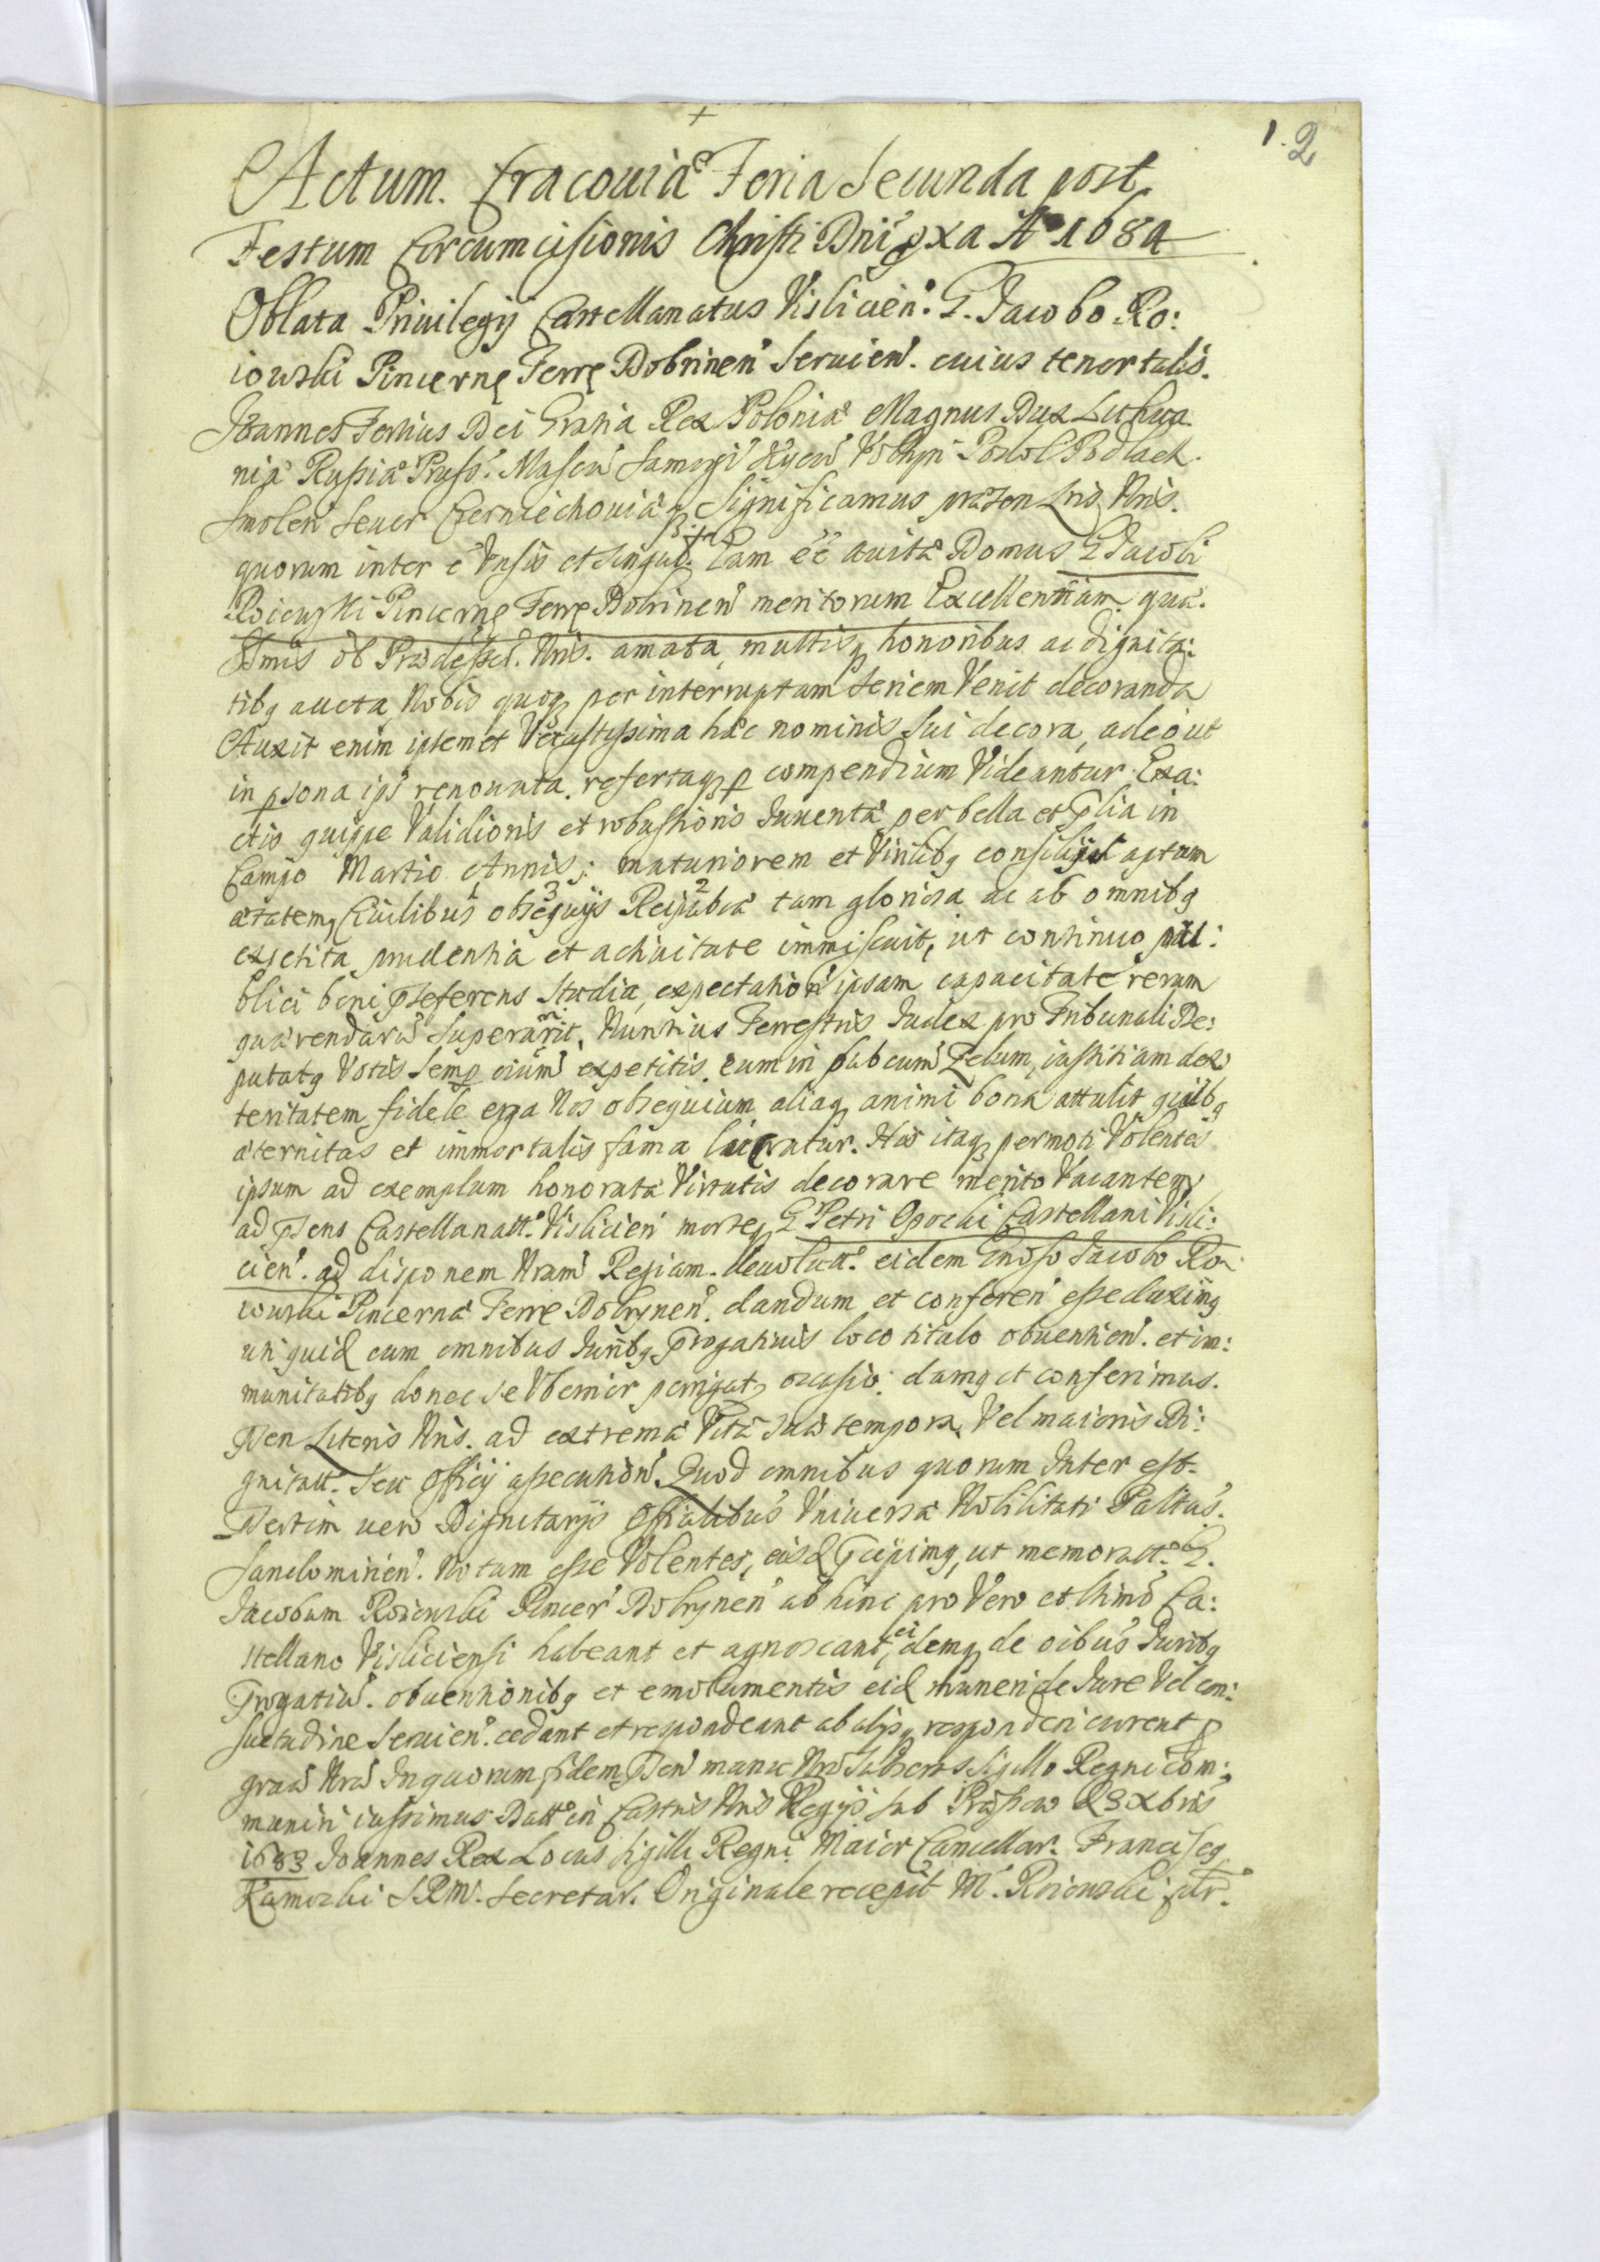 1. 2
Actum. Cracouiæ Feria Secunda post
Festum Circumcisionis Christi Dni pxa A° 1684
Oblata Priuilegÿ Castellanatus Visliciën. G. Jacobo Ro:
iowski Pincernę Terrę Dobrinen̄ seruien̄. cuius tenor talis.
Joannes Tertius Dei Gratia Rex Poloniæ Magnus Dux Lithua
niæ Russiæ Pruss. Masou Samogi Kyou Volhyn Podol Podlach.
Smolen Seuer Czerniechouiæq Significamus præsen Lris Nris.
quorum inter ē Vnsis et singul. Eam eē auitæ Domus G Jacobi
Roiewski Pincernę Terrę Dobrinen meritorum Excellentiam. quæ.
ob Prædesses. Nris. amata, multisq honoribus ac dignita:
tibq aucta, Nobis quoq per interruptam seriem Venit decoranda
Auxit enim ipsemet Vetustissima hæc nominis sui decora, adeo ut
in psona ips renouata. refertaq p compendium Videantur. Exa:
ctis quippe Validioris et robustioris Juuentæ per bella et plia in
Campo Martio Annis; maturiorem et Virilibq consilijs aptam
ætatemq Ciuilibus obsequijs Reipublcæ tam gloriosa ac ab omnibq
expetita prudentia et actiuitate immiscuit, ut continuo pu:
blici boni pseferens studia, expectation̄ ipsam capacitate rerum
quærendarū superarit. Nuntius Terrestris Judex pro Tribunali De:
putatq Votis semp oium expetitis. eum in pubcum Zelum, iustitiam dex
teritatem, fidele erga Nos obsequium aliaq animi bona attulit quibq
æternitas et immortalis fama Itaq permoti Volentes
ipsum ad exemplum honoratæ Virtutis decorare merito Vacantem
ad psens Castellanatt. Vislicien morteq G Petri Opocki Castellani Visli:
cien. ad disponem Nram Regiam. deuolutt. eidem Gnoso Jacobo Ro
iowski Pincernæ Terrę Dobrynen. dandum et conferen esse duximq
uti quid cum omnibus Juribq Prrogatiuis loco titulo obuention. et im:
munitatibq donec se Vberior porrigat occasio: damq et conferimus.
psen Literis Nris. ad extrema Vitæ suæ tempora Vel maioris Di:
gnitatt. seu Officij assecution. Quod omnibus quorum Inter est
psertim uero Dignitarijs Officialibus Vniuersæ Nobilitati Paltus.
Sandomirien. Notum esse Volentes, eisd pcipimq, ut memoratt. G.
Jacobum Roiewski Pincer Dobrynen ab hinc pro Vero et ltimo Ca:
stellano Visliciensi habeant et agnoscant, eidemq de oibus Juribq
Prrogatiu. obuentionibq et emolumentis eid muneri de Jure Vel con:
suetudine seruien. cedant et respondeant ab alijsq responderi curent p
gratia Nra In quorum fidem psen manu Nra subscrptas sigillo Regni com:
muniri iussimus Datt in Castris Nris Regijs sub
1683 Joannes Rex Locus sigilli Regni Maior Cancellar. Franciscq
SRM. Secretar. Originale recepit M. Roiewski